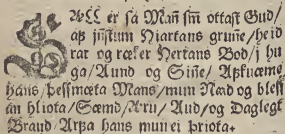 SÆLL er sa Mañ sm ottast Gud/
aþ iñstum Hiartans gruñe/heid
rar og ræker Herrans Bod/j hu
ga/Aund og Siñe/Afkuæme
hans/þessmæta Mans/mun Nad og bless
an hliota/Sæmd/Æru/Aud/og Daglegt
Braud/Arfa hans mun ei þriota.